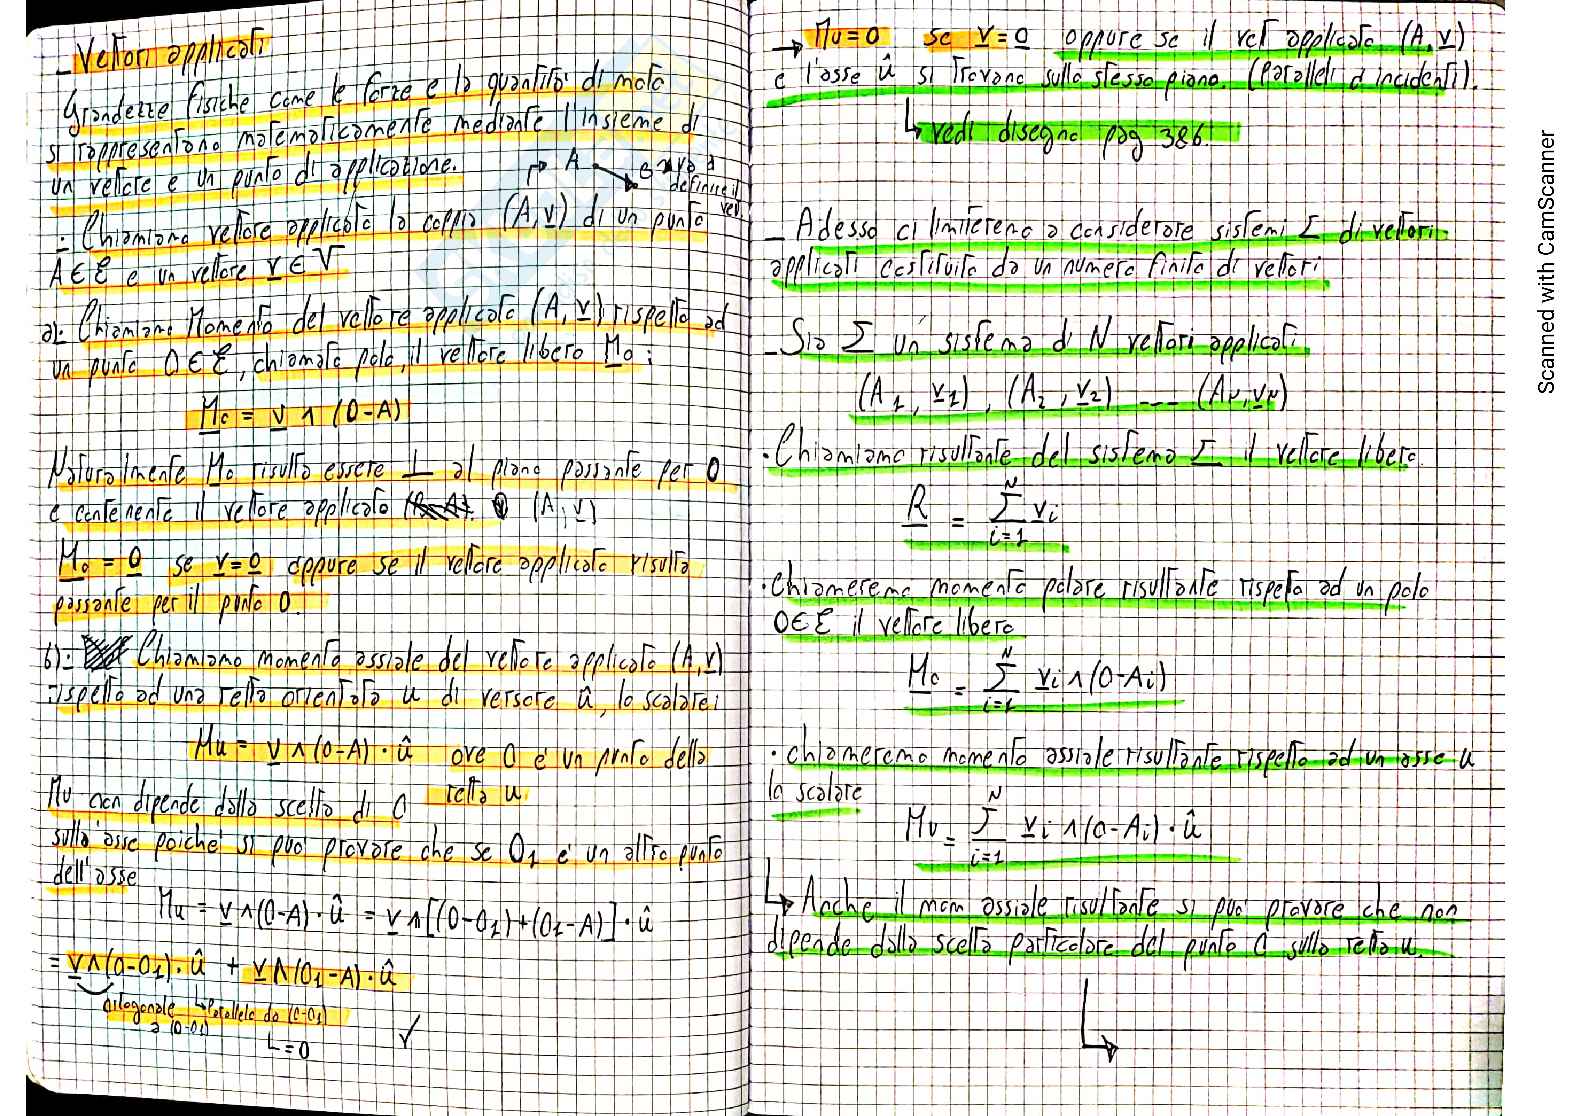 - Vettori applicati
Grandezze fisiche come le forze e la quantità di moto
si rappresentano matematicamente mediante l'insieme di
un vettore e un punto di applicazione.
A B va a
definire il
vet.
-: Chiamiamo vettore applicato la coppia (A, v) di un punto
A ∈ E e un vettore v ∈ V
a): Chiamiamo Momento del vettore applicato (A, v) rispetto ad
un punto O ∈ E, chiamato polo, il vettore libero Mo:
Mo = v ∧ (O-A)
Naturalmente Mo risulta essere ⊥ al piano passante per O
e contenente il vettore applicato (A, v)
Mo = 0 se v=0 oppure se il vettore applicato risulta
passante per il punto O.
b): Chiamiamo momento assiale del vettore applicato (A, v)
rispetto ad una retta orientata u di versore û, lo scalare:
Mu = v ∧ (O-A) · û ove O è un punto della
retta u
Mu non dipende dalla scelta di O
sulla asse poiché si può provare che se O1 è un altro punto
dell'asse
Mu = v ∧ (O-A) · û = v ∧ [(O-O1) + (O1-A)] · û
= v ∧ (O-O1) · û + v ∧ (O1-A) · û
ortogonale parallelo da (O-O1)
a (O-O1)
= 0 ✓
→ Mu = 0 se v = 0 oppure se il vet applicato (A, v)
e l'asse û si trovano sullo stesso piano. (paralleli o incidenti).
↳ vedi disegno pag 386.
- Adesso ci limiteremo a considerare sistemi Σ di vettori
applicati costituito da un numero finito di vettori
- Sia Σ un sistema di N vettori applicati
(A1, v1), (A2, v2) ---- (AN, vN)
· Chiamiamo risultante del sistema Σ il vettore libero
R = Σ vi
N
i=1
· Chiameremo momento polare risultante rispetto ad un polo
O ∈ E il vettore libero
Mo = Σ vi ∧ (O-Ai)
N
i=1
· chiameremo momento assiale risultante rispetto ad un asse u
lo scalare
Mu = Σ vi ∧ (O-Ai) · û
N
i=1
↳ Anche il mom assiale risultante si può provare che non
dipende dalla scelta particolare del punto O sulla retta u.
Scanned with CamScanner